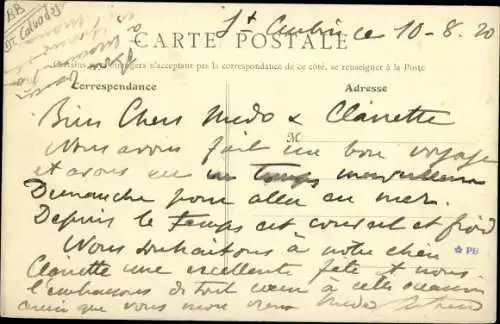 BB
Dt Calvados
St Aubin ce 10-8-20
CARTE POSTALE
étrangers n'acceptant pas la correspondance de ce côté, se renseigner à la Poste
Correspondance
Adresse
M
Bien Chers Medo & Clairette
Nous avons fait un bon voyage
et avons eu un temps merveilleux
Dimanche pour aller en mer.
Depuis le temps est couvert et froid
Nous souhaitons à notre chère
Clairette une excellente fête & nous
l'embrassons de tout cœur à cette occasion
ainsi que vous mon vieux Medo